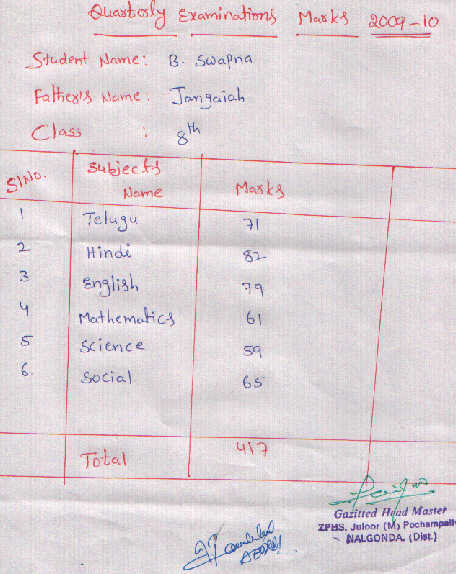 Quarterly Examinations Marks 2009-10
Student Name: B. Swapna
Father's Name: Jangaiah
Class : 8th
Sl No. Subjects Name Marks
1 Telugu 71
2 Hindi 82
3 English 79
4 Mathematics 61
5 Science 59
6. Social 65
Total 417
Gazitted Head Master
ZPHS. Juloor (M) Pochampally
NALGONDA. (Dist.)